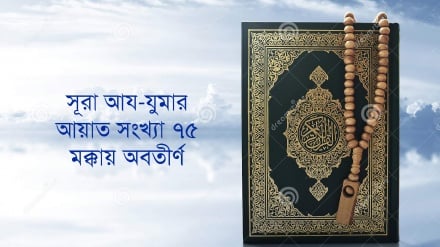 সূরা আয-যুমার
আয়াত সংখ্যা ৭৫
মক্কায় অবতীর্ণ